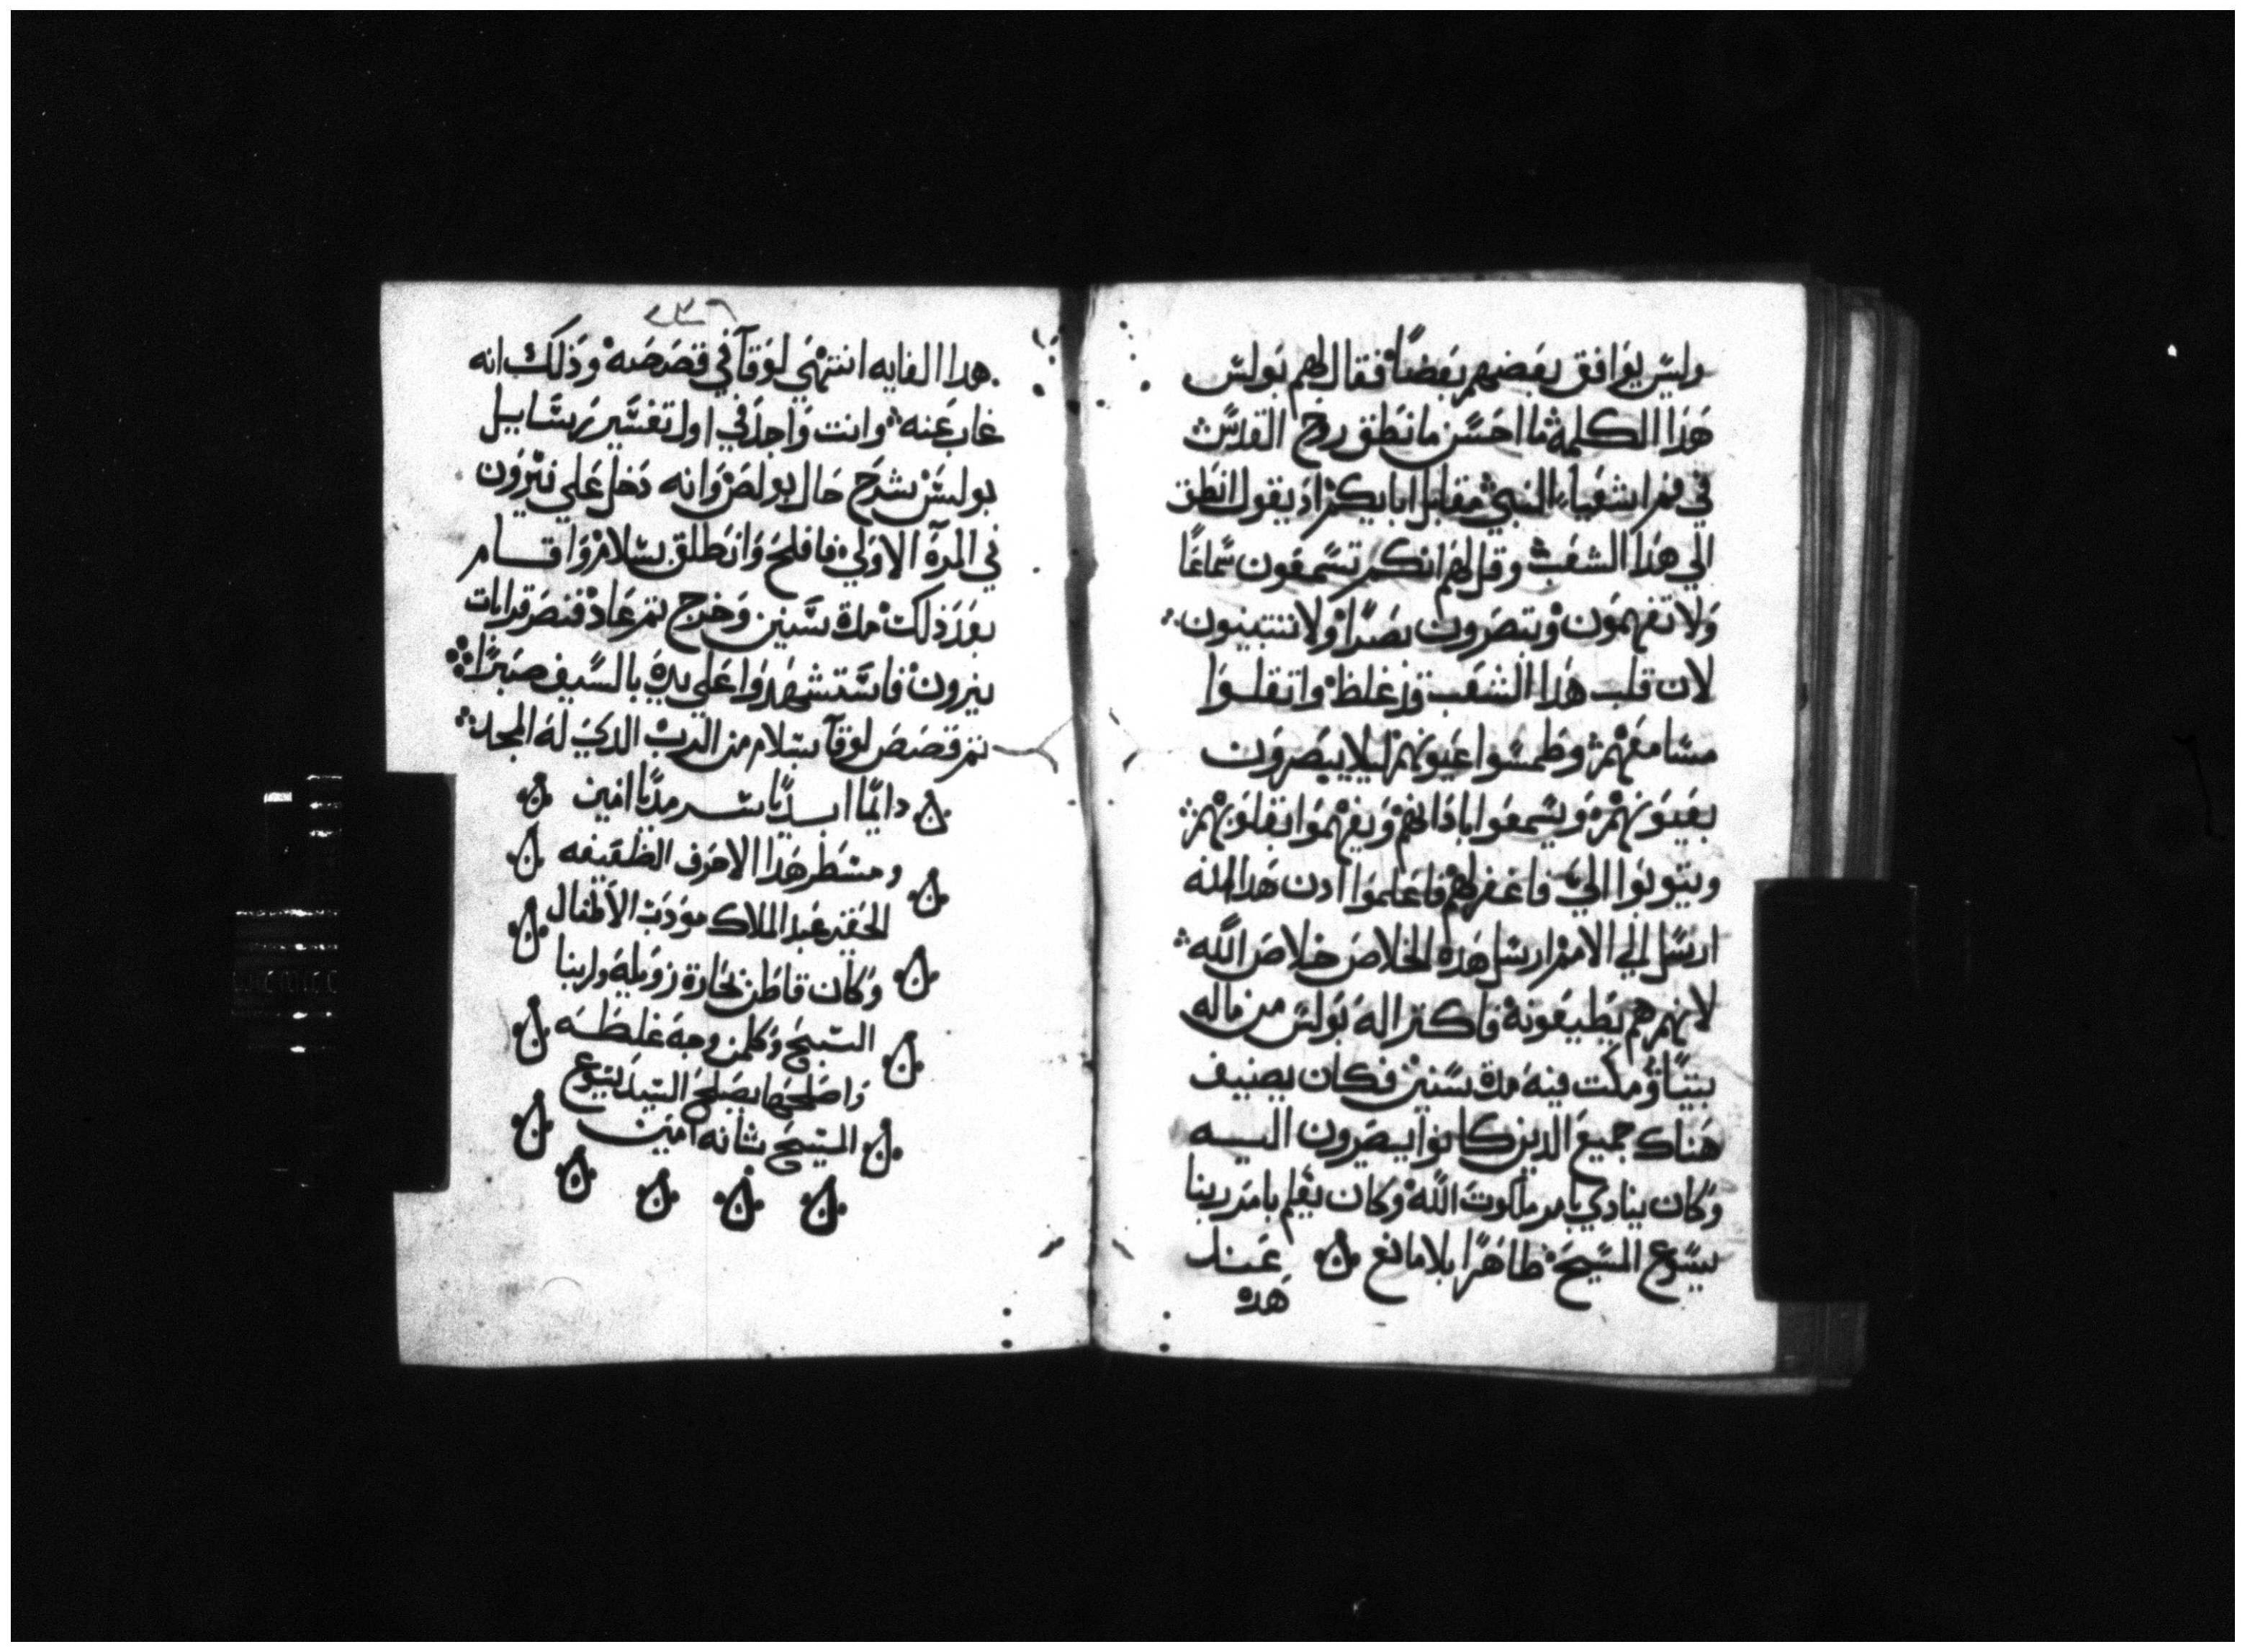 وليس يوافق بعضهم بعضًا فقال لهم بولس
هذا الكلمة ما احسن ما نطق روح القدس
في فم اشعياء النبي مقابل ابايكم اذ يقول انطق
الي هذا الشعب وقل لهم انكم تسمعون سماعًا
ولا تفهمون وتبصرون بصرًا ولا تتبينون
لان قلب هذا الشعب قد غلظ واثقلوا
مسامعهم وطمسوا عيونهم ليلا يبصرون
بعيونهم ويسمعوا باذانهم ويفهموا بقلوبهم
ويتوبوا الي فاغفر لهم فاعلموا ادن هذا انه
ارسل الي الامم ارسل هذه الخلاص خلاص الله
لانهم هم يطيعونه فاكترا له بولس من ماله
بيتًا ومكت فيه مدة سنين فكان يضيف
هناك جميع الدين كانوا يصيرون اليه
وكان ينادي بامر ملكوت الله وكان يعلم بامر ربنا
يسوع المسيح ظاهرًا بلا مانع ن عند
هده
٢٣٦
هدا الغايه انتهي لوقا في قصصه وذلك انه
غاب عنه وانت واجد في اول تفسير رسايل
بولس بشرح حال بولص وانه دخل علي نيرون
في المرة الاولي فافلح وانطلق بسلام واقام
بعد ذلك مدة سنين وخرج ثم عاد فنصر قرابات
نيرون فاستشهدوا علي يديه بالسيف صبرًا
تم قصص لوقا بسلام من الرب الدي له المجد
ن دايمًا ابديًا سرمديًا امين ن
ومسطر هذا الاحرف الضعيفه ن
ن الحقير عبد الملاك مودب الاطفال ن
ن وكان قاطن بحارة زويلة ولربنا
ن السبح وكلمن وجد غلطه ن
واصلحها يصلح السيد يسوع
ن المسيح شانه امين ن
ن ن ن ن